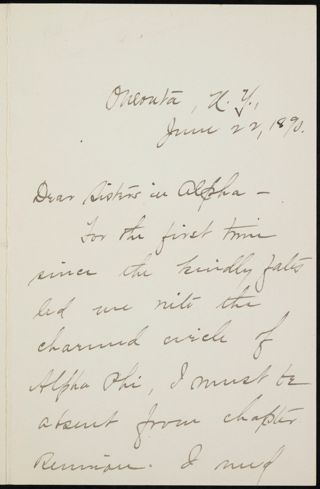 Oneonta, N. Y.,
June 22, 1890.
Dear Sisters in Alpha —
For the first time
since the kindly fates
led me into the
charmed circle of
Alpha Phi, I must be
absent from chapter
Reunion. I need